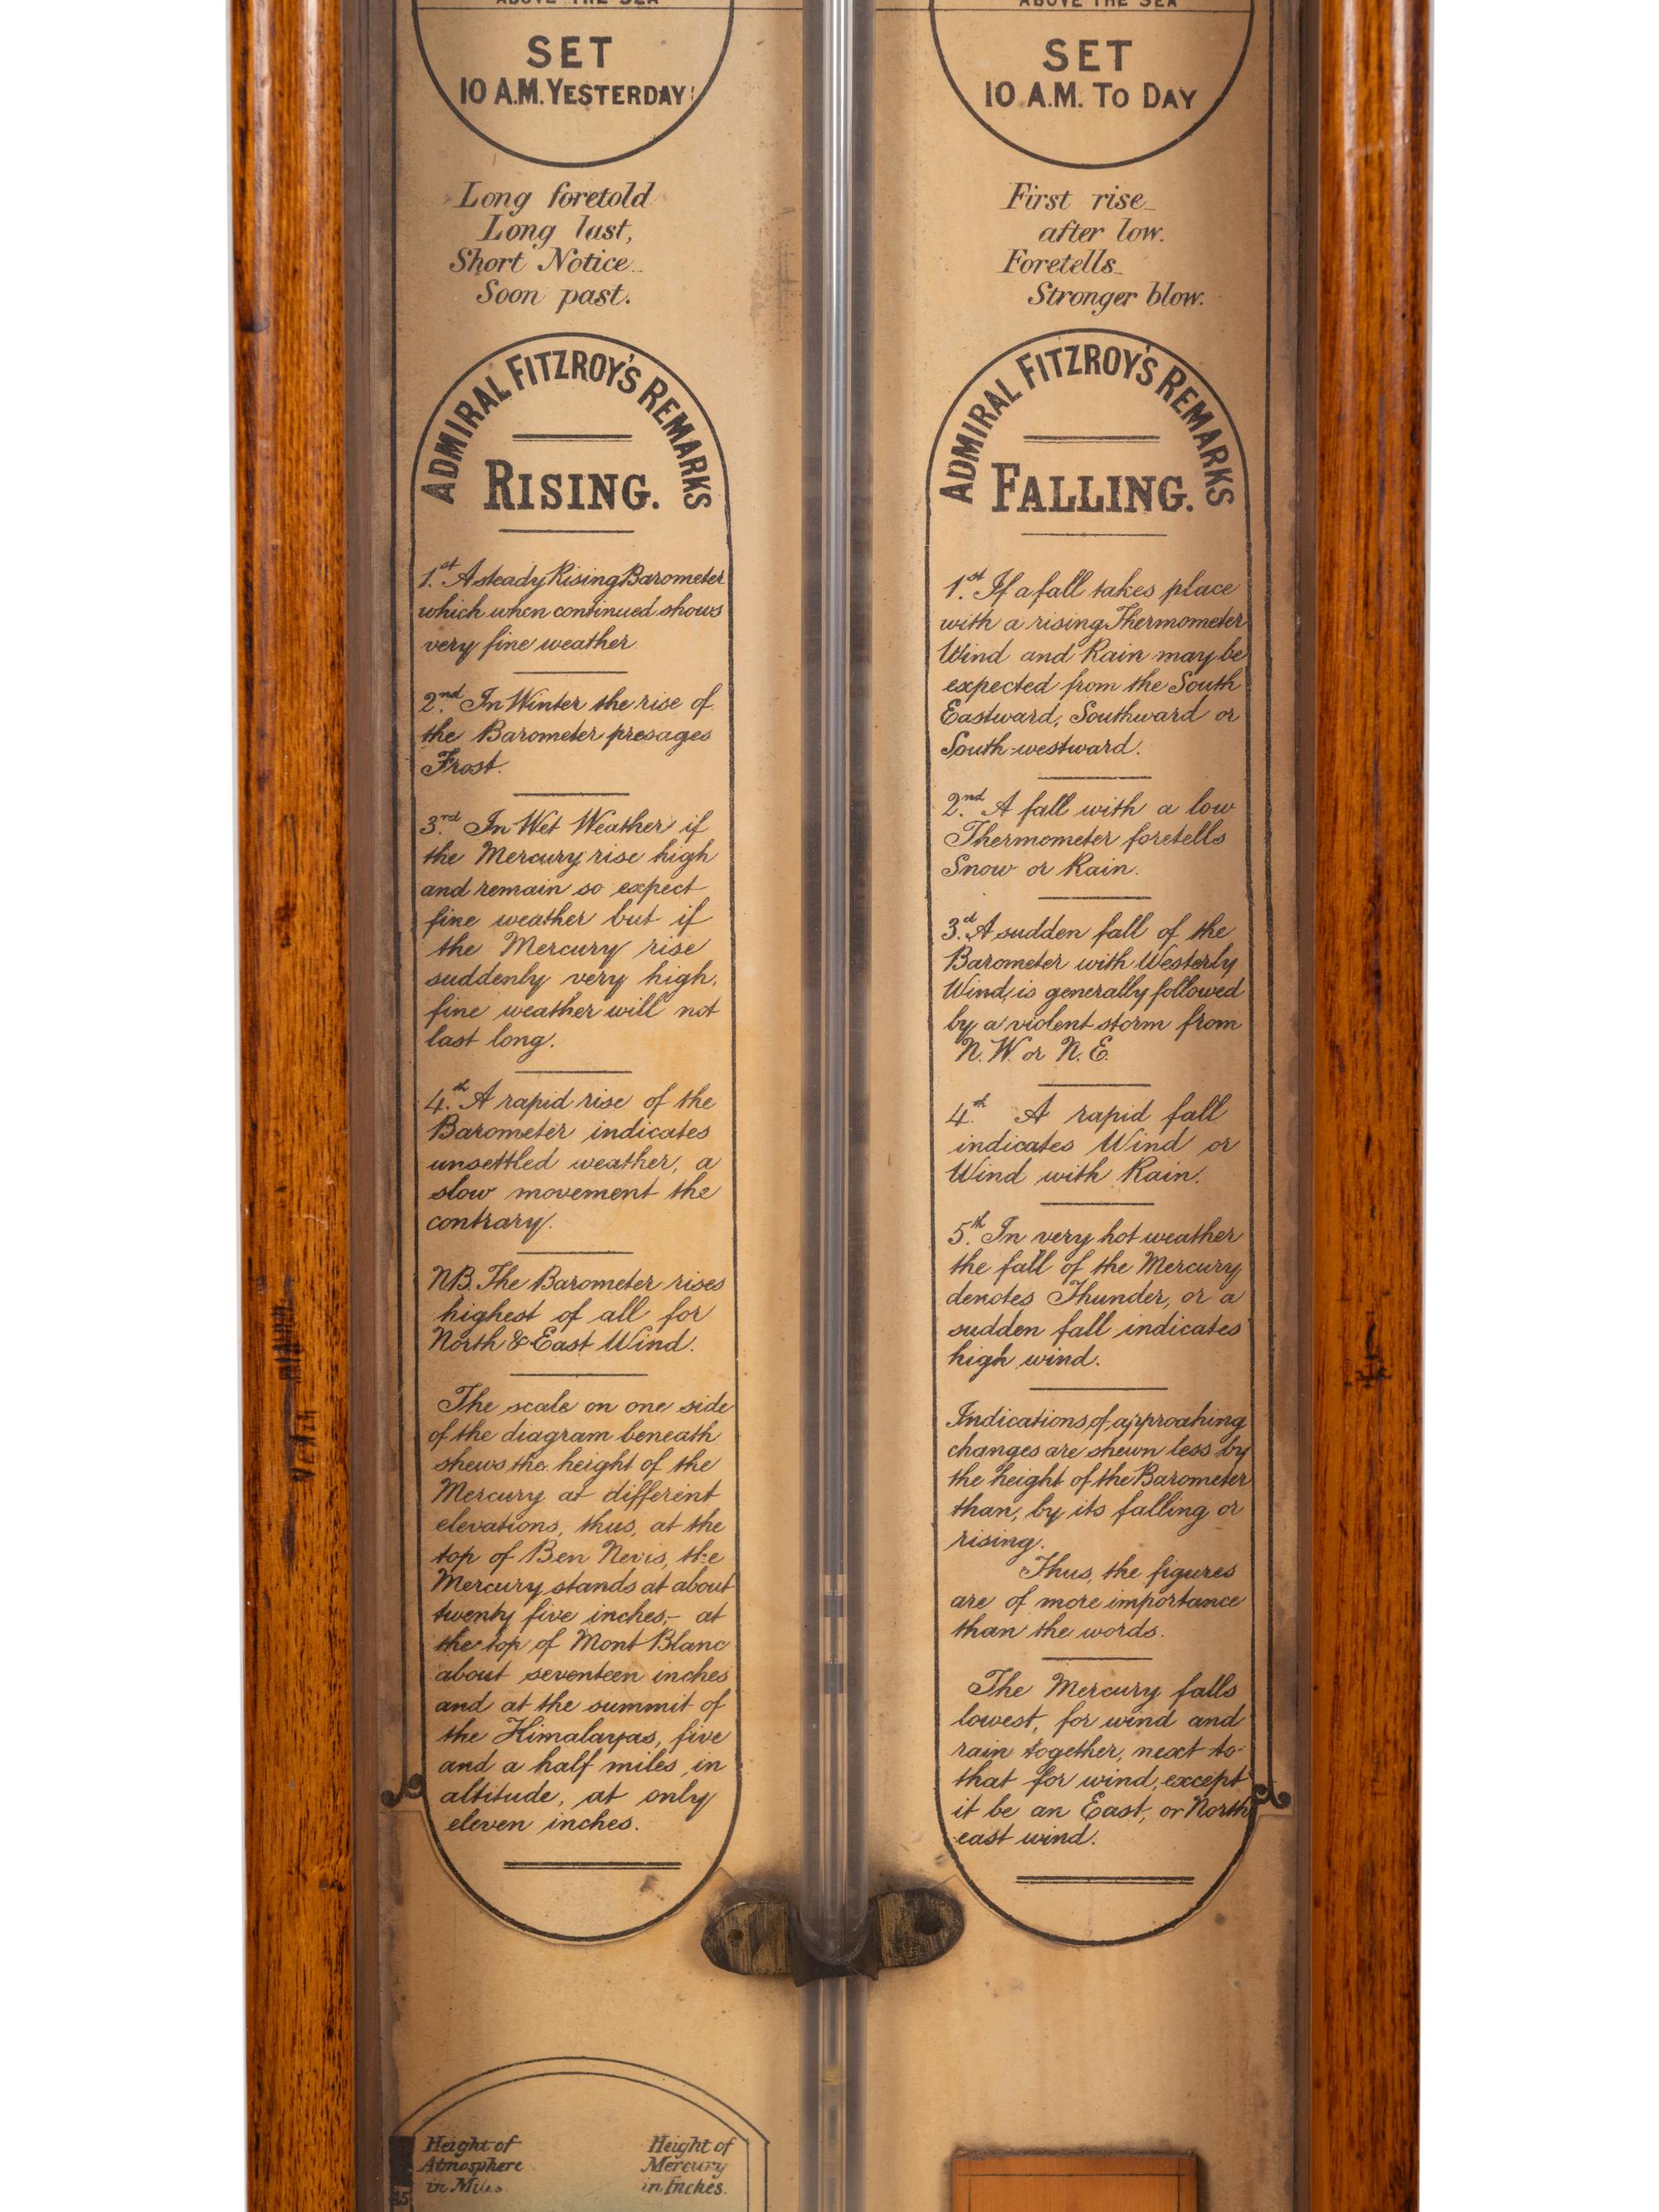 ABOVE THE SEA
SET
10 A.M. YESTERDAY
Long foretold
Long last,
Short Notice
Soon past.
ADMIRAL FITZROY'S REMARKS
RISING.
1.st A steady Rising Barometer
which when continued shows
very fine weather
2.nd In Winter the rise of
the Barometer presages
Frost.
3.rd In Wet Weather if
the Mercury rise high
and remain so expect
fine weather but if
the Mercury rise
suddenly very high,
fine weather will not
last long.
4.th A rapid rise of the
Barometer indicates
unsettled weather, a
slow movement the
contrary.
NB. The Barometer rises
highest of all for
North & East Wind.
The scale on one side
of the diagram beneath
shews the height of the
Mercury at different
elevations, thus, at the
top of Ben Nevis, the
Mercury stands at about
twenty five inches,- at
the top of Mont Blanc
about seventeen inches
and at the summit of
the Himalayas, five
and a half miles in
altitude, at only
eleven inches.
Height of
Atmosphere
in Miles
Height of
Mercury
in Inches.
15
ABOVE THE SEA
SET
10 A.M. TO DAY
First rise
after low.
Foretells
Stronger blow.
ADMIRAL FITZROY'S REMARKS
FALLING.
1st. If a fall takes place
with a rising Thermometer
Wind and Rain may be
expected from the South
Eastward, Southward or
South-westward.
2nd. A fall with a low
Thermometer foretells
Snow or Rain.
3.d A sudden fall of the
Barometer with Westerly
Wind, is generally followed
by a violent storm from
N. W. or N. E.
4th. A rapid fall
indicates Wind or
Wind with Rain.
5.th In very hot weather
the fall of the Mercury
denotes Thunder, or a
sudden fall indicates
high wind.
Indications of approahing
changes are shewn less by
the height of the Barometer
than, by its falling or
rising.
Thus, the figures
are of more importance
than the words.
The Mercury falls
lowest, for wind and
rain together, next to
that for wind, except
it be an East, or North
east wind.